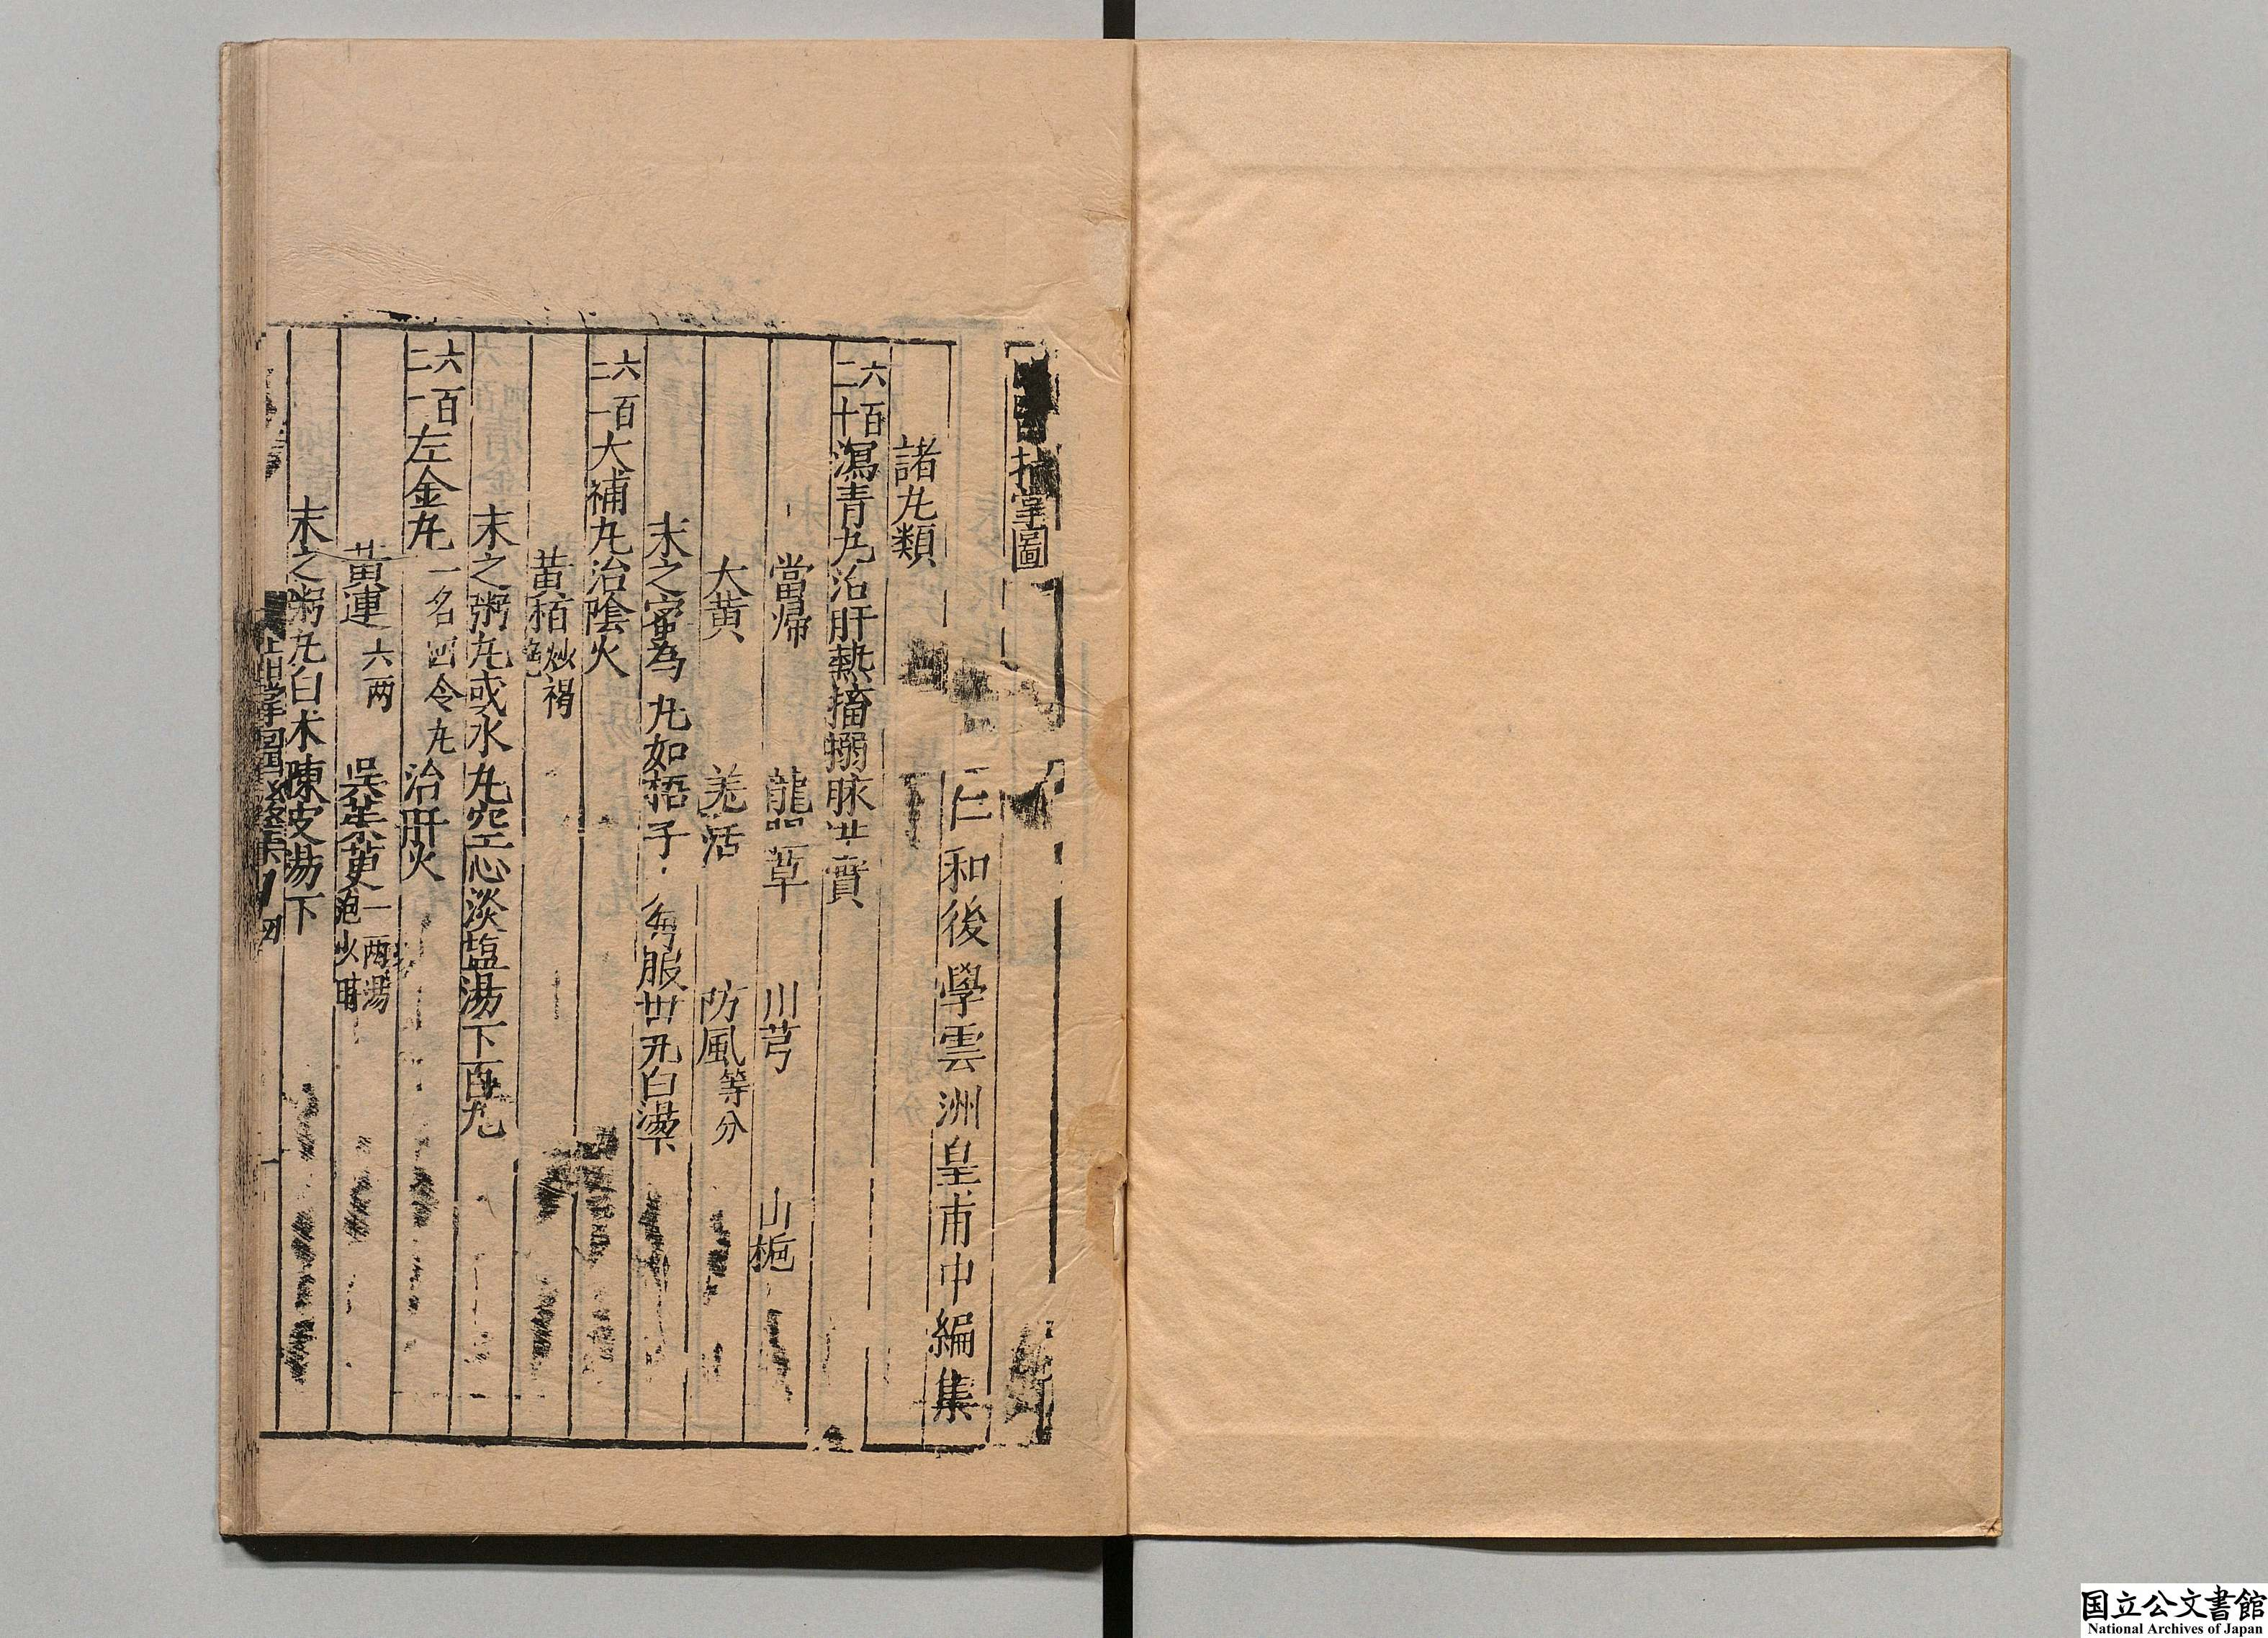 指掌圖
仁和後學雲洲皇甫中編集
諸丸類
六百二十瀉青丸治肝熱搐搦脉洪實
當歸 龍 草 川芎 山梔
大黄 羌活 防風等分
末之蜜為丸如梧子每服卅丸白湯下
六百二一大補丸治陰火
黄栢炒褐色
末之粥丸或水丸空心淡塩湯下百丸
六百二一左金丸一名回令丸治肝火
黄連六两 吳茱萸一两湯泡
末之粥丸白术陳皮湯下
指掌圖
国立公文書館
National Archives of Japan